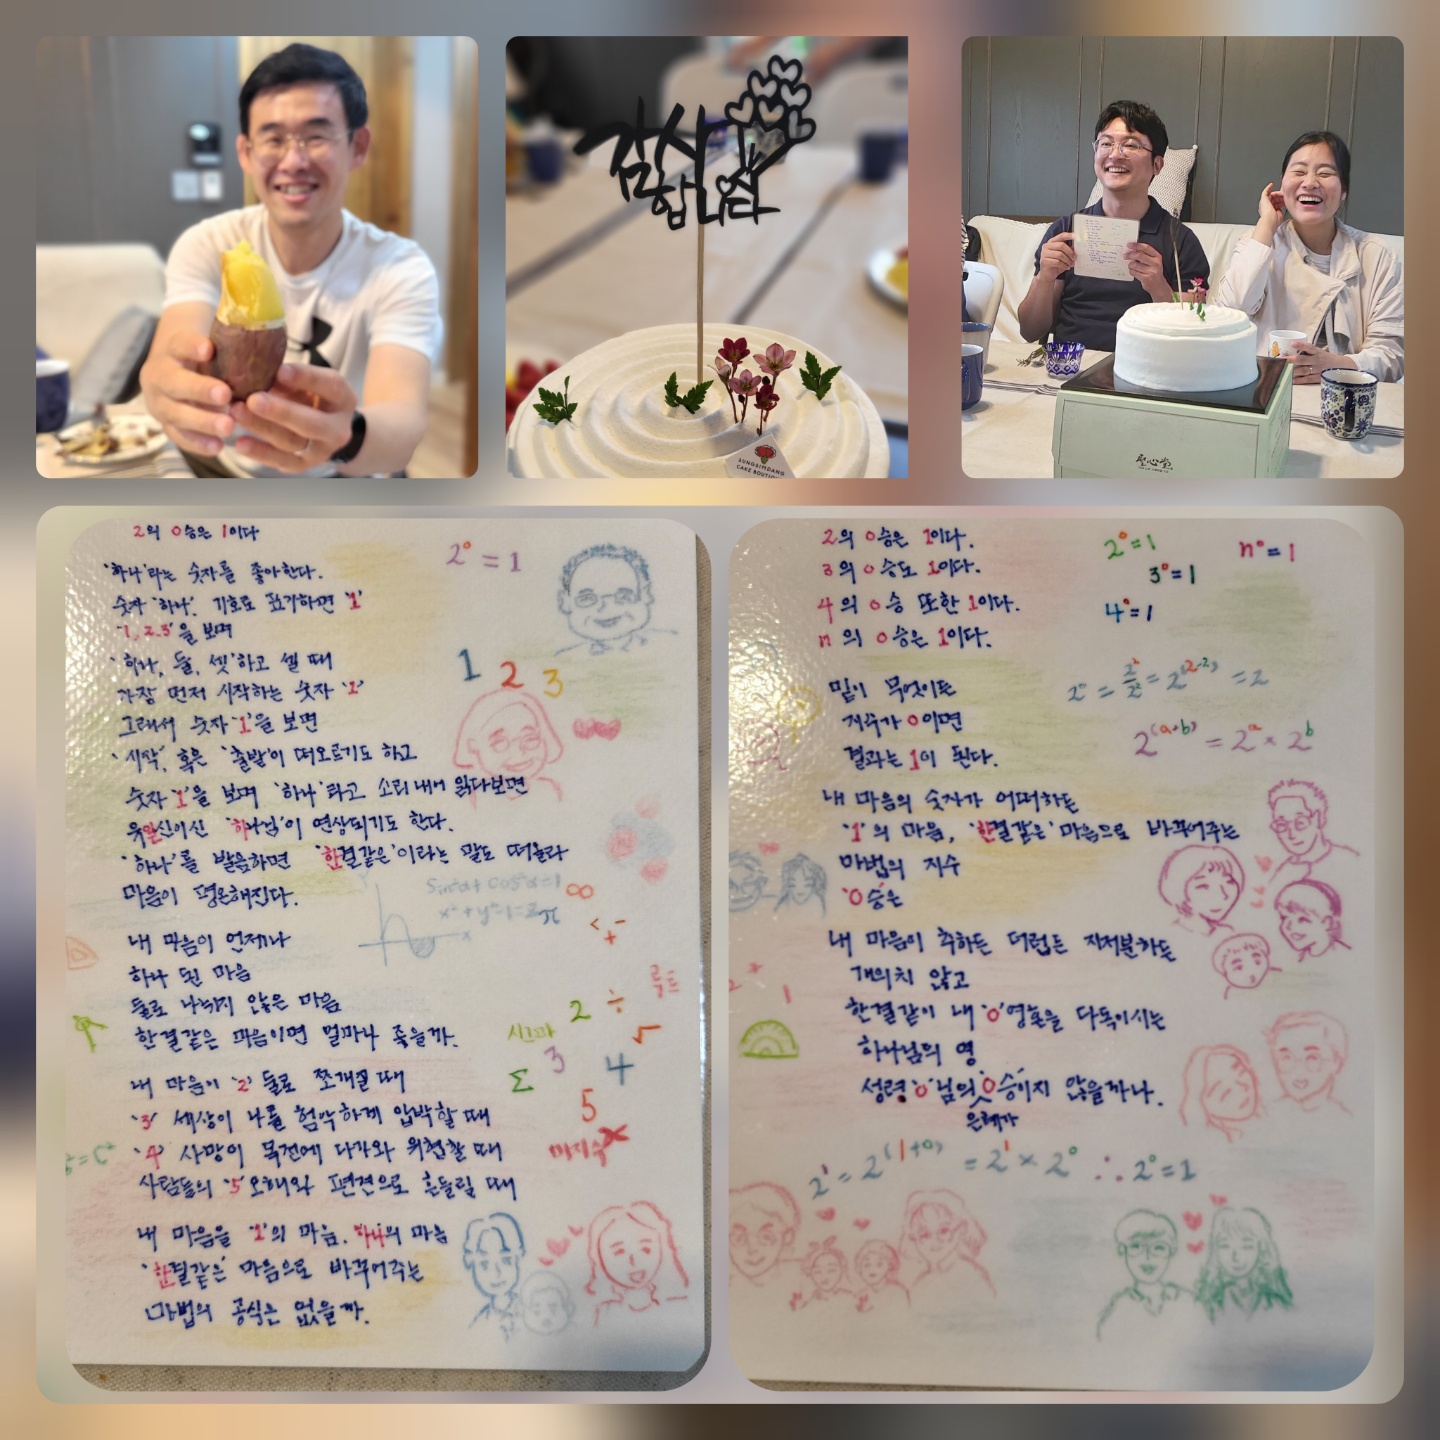 감사합니다
SUNGSIMDANG
CAKE BOUTIQUE
聖心堂
2의 0승은 1이다
2⁰ = 1
'하나'라는 숫자를 좋아한다.
숫자 '하나'. 기호로 표기하면 '1'
'1, 2, 3'을 보며
'하나, 둘, 셋'하고 셀 때
가장 먼저 시작하는 숫자 '1'
1 2 3
그래서 숫자 '1'을 보면
'시작', 혹은 '출발'이 떠오르기도 하고
숫자 '1'을 보며 '하나'라고 소리내어 읽다보면
유일신이신 '하나님'이 연상되기도 한다.
'하나'를 발음하면 '한결같은'이라는 말도 떠올라
마음이 평온해진다.
∞
내 마음이 언제나
하나 된 마음
둘로 나뉘지 않은 마음
한결같은 마음이면 얼마나 좋을까.
루트
2 ÷
√
시그마
3 4
Σ
5
미지수 X
내 마음이 '2' 둘로 쪼개질 때
'3' 세상이 나를 험악하게 압박할 때
'4' 사망이 목전에 다가와 위협할 때
사람들의 '5' 오해와 편견으로 흔들릴 때
내 마음을 '1'의 마음. 하나의 마음
'한결같은' 마음으로 바꾸어주는
마법의 공식은 없을까.
2의 0승은 1이다.
3의 0승도 1이다.
4의 0승 또한 1이다.
n의 0승은 1이다.
2⁰=1
n⁰=1
3⁰=1
4⁰=1
밑이 무엇이든
지수가 0이면
결과는 1이 된다.
2^(a+b) = 2^a × 2^b
내 마음의 숫자가 어떠하든
'1'의 마음, '한결같은' 마음으로 바꾸어주는
마법의 지수
'0'승은
내 마음이 추하든 더럽든 지저분하든
개의치 않고
한결같이 내 '0'영혼을 다독이시는
하나님의 영
성령'0'님의 '0'승이지 않을까나.
은혜가
2¹ = 2^(1+0) = 2¹ × 2⁰ ∴ 2⁰=1